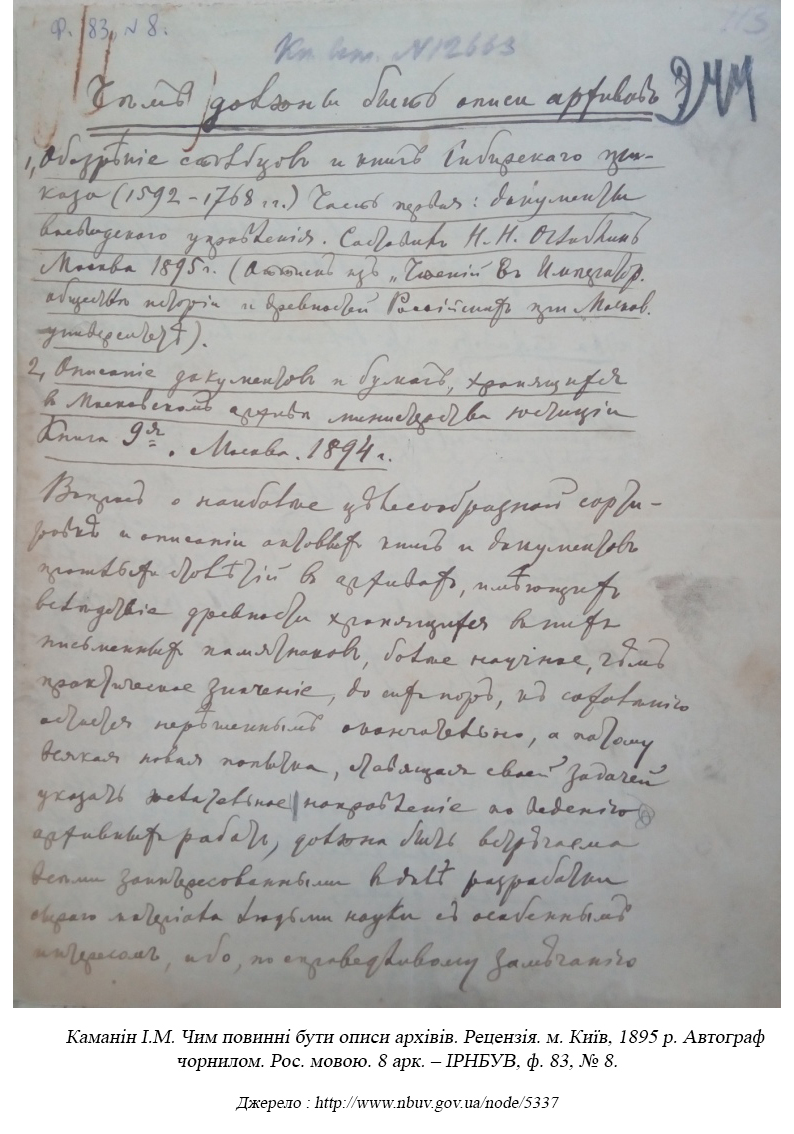 Ф. 83, № 8.
113
Кн. вст. N 12663
Чѣмъ должны быть описи архивовъ
1, Обозрѣніе столбцовъ и книгъ Сибирскаго при-
каза (1592–1768 гг.) Часть первая: документы
воеводскаго управленія. Составилъ Н. Н. Оглоблинъ
Москва 1895 г. (Оттискъ изъ „Чтеній въ Император.
обществѣ исторіи и древностей Россійскихъ при Москов.
университетѣ).
2, Описаніе документовъ и бумагъ, хранящихся
въ Московскомъ архивѣ министерства юстиціи
Книга 9я. Москва. 1894 г.
Вопросъ о наиболѣе цѣлесообразной сорти-
ровкѣ и описаніи актовыхъ книгъ и документовъ
прошлыхъ столѣтій въ архивахъ, имѣющихъ
вслѣдствіе древности хранящихся въ нихъ
письменныхъ памятниковъ, болѣе научное, чѣмъ
практическое значеніе, до сихъ поръ, къ сожалѣнію
остается нерѣшеннымъ окончательно, а потому
всякая новая попытка, ставящая своей задачей
указать желательное направленіе по веденію
архивныхъ работъ, должна быть встрѣчаема
всѣми заинтересованными въ дѣлѣ разработки
сыраго матеріала людьми науки съ особеннымъ
интересомъ, ибо, по справедливому замѣчанію
Каманін І.М. Чим повинні бути описи архівів. Рецензія. м. Київ, 1895 р. Автограф
чорнилом. Рос. мовою. 8 арк. – ІРНБУВ, ф. 83, № 8.
Джерело : http://www.nbuv.gov.ua/node/5337